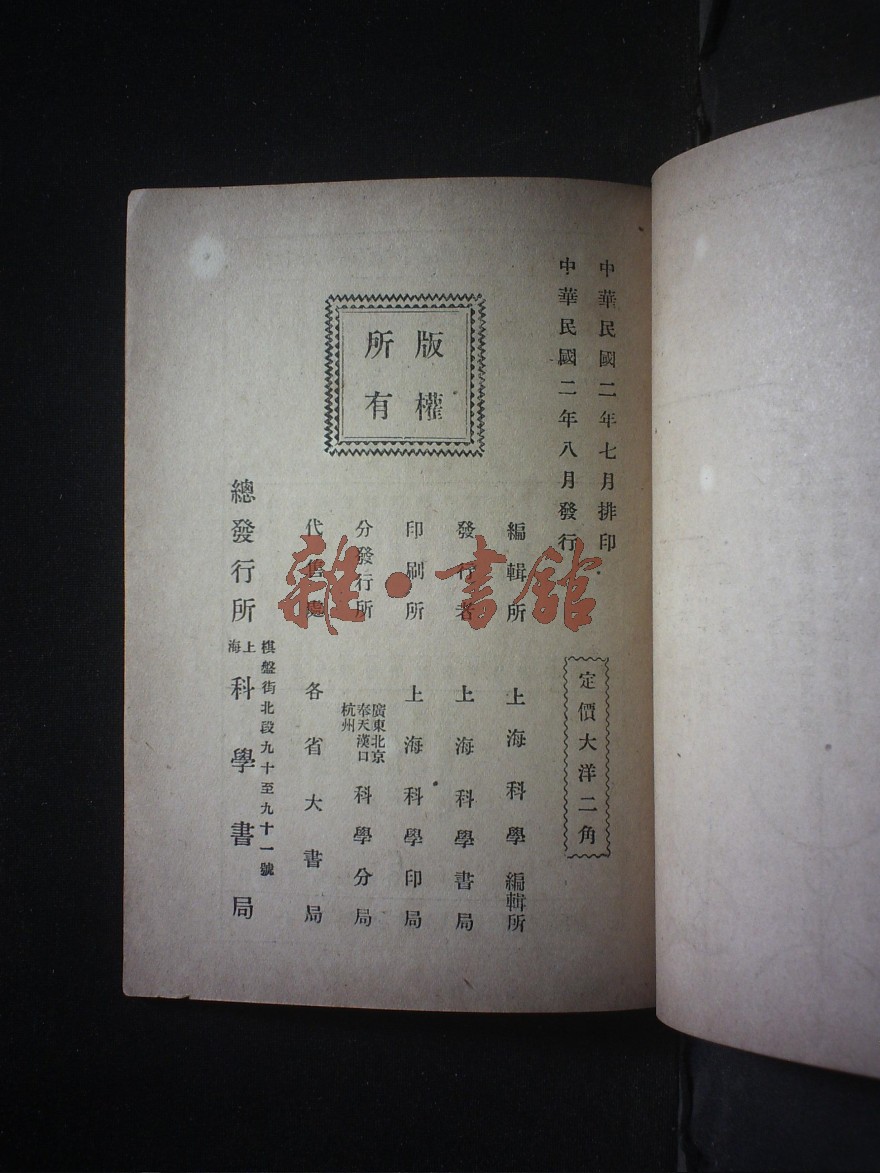 中華民國二年七月排印
中華民國二年八月發行
定價大洋二角
版權
所有
編輯所 上海科學編輯所
發行者 上海科學書局
印刷所 上海科學印局
分發行所 廣東北京奉天漢口杭州 科學分局
代售處 各省大書局
總發行所 上海 棋盤街北段九十至九十一號 科學書局
雜·書館